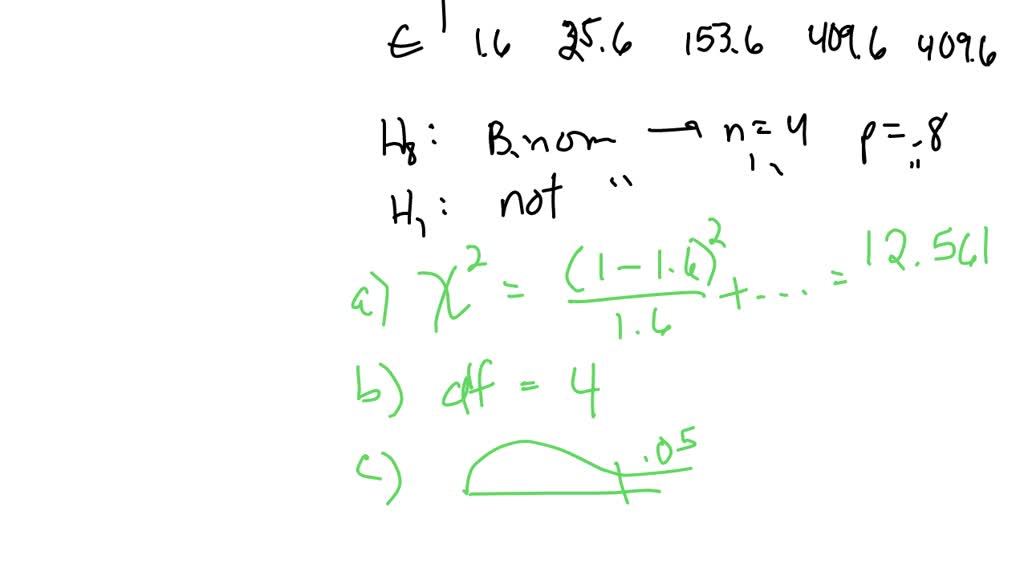 E 1.6 25.6 153.6 409.6 409.6
H₀: Binom → n=4 p=.8
H₁: not " " "
a) χ² = (1-1.6)²/1.6 + .... = 12.561
b) df = 4
c) .05